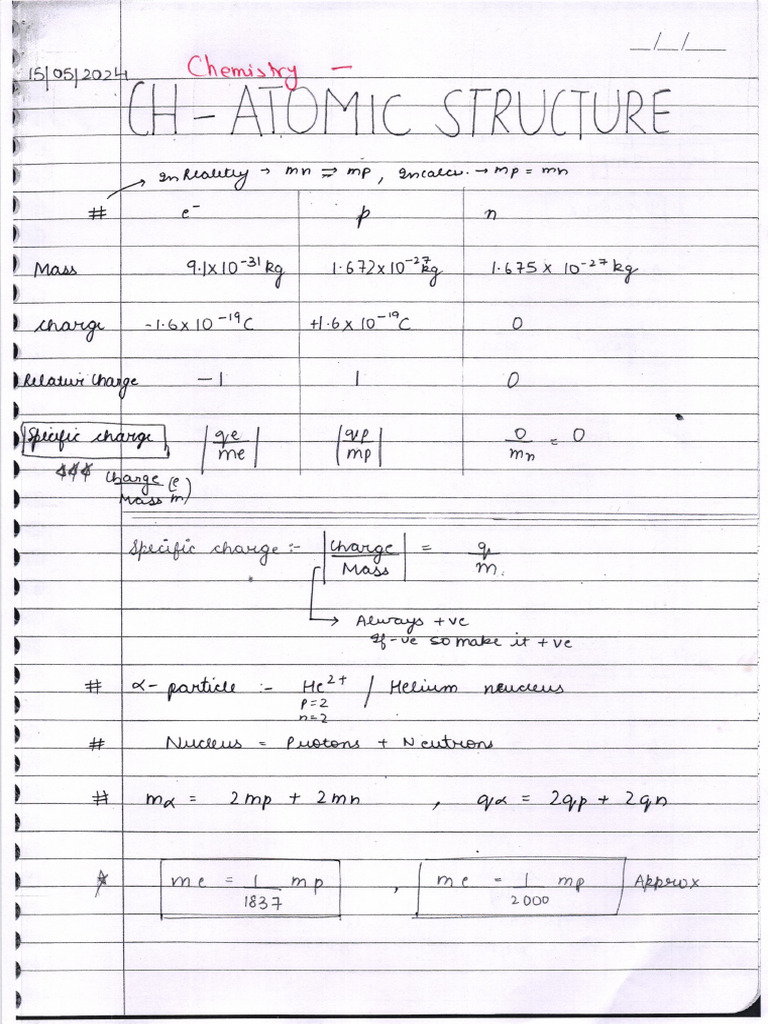 __/__/____
15/05/2024 Chemistry -
CH - ATOMIC STRUCTURE
In Reality → mn ⇌ mp, In calcu. → mp = mn
# e⁻ p n
Mass 9.1x10⁻³¹kg 1.672x10⁻²⁷kg 1.675x 10⁻²⁷kg
charge -1.6x10⁻¹⁹C +1.6x10⁻¹⁹C 0
Relative Charge -1 1 0
Specific charge |qe/me| |qp/mp| 0/mn = 0
Charge (e
Mass m)
Specific charge :- |Charge/Mass| = q/m.
Always +ve
If -ve so make it +ve
# α- particle :- He²⁺ / Helium neucleus
p=2
n=2
# Nucleus = Protons + Neutrons
# mα = 2mp + 2mn , qα = 2qp + 2qn
me = 1/1837 mp , me = 1/2000 mp Approx